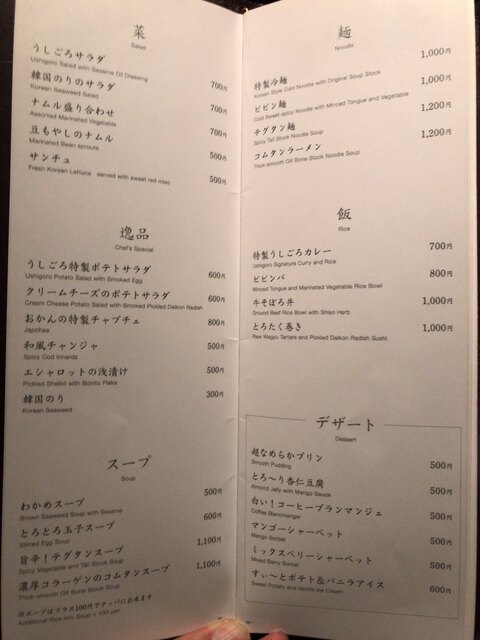 菜
Salad
うしごろサラダ
Ushigoro Salad with Sesame Oil Dressing
700円
韓国のりのサラダ
Korean Seaweed Salad
700円
ナムル盛り合わせ
Assorted Marinated Vegetable
700円
豆もやしのナムル
Marinated Bean sprouts
500円
サンチュ
Fresh Korean Lettuce served with sweet red miso
500円
逸品
Chef's Special
うしごろ特製ポテトサラダ
Ushigoro Potato Salad with Smoked Egg
600円
クリームチーズのポテトサラダ
Cream Cheese Potato Salad with Smoked Pickled Daikon Radish
600円
おかんの特製チャプチェ
Japchae
800円
和風チャンジャ
Spicy Cod Innards
500円
エシャロットの浅漬け
Pickled Shallot with Bonito Flake
500円
韓国のり
Korean Seaweed
300円
スープ
Soup
わかめスープ
Brown Seaweed Soup with Sesame
500円
とろとろ玉子スープ
Stirred Egg Soup
600円
旨辛！テグタンスープ
Spicy Vegetable and Tail Stock Soup
1,100円
濃厚コラーゲンのコムタンスープ
Thick-smooth OX Bone Stock Soup
1,100円
※スープはプラス100円でクッパに出来ます
Additional Rice into Soup + 100 yen
麺
Noodle
特製冷麺
Korean Style Cold Noodle with Original Soup Stock
1,000円
ビビン麺
Cold Sweet-spicy Noodle with Minced Tongue and Vegetable
1,000円
テグタン麺
Spicy Tail Stock Noodle Soup
1,200円
コムタンラーメン
Thick-smooth OX Bone Stock Noodle Soup
1,200円
飯
Rice
特製うしごろカレー
Ushigoro Signature Curry and Rice
700円
ビビンバ
Minced Tongue and Marinated Vegetable Rice Bowl
800円
牛そぼろ丼
Ground Beef Rice Bowl with Shiso Herb
1,000円
とろたく巻き
Raw Wagyu Tartare and Pickled Daikon Radish Sushi
1,000円
デザート
Dessert
超なめらかプリン
Smooth Pudding
500円
とろ〜り杏仁豆腐
Almond Jelly with Mango Sauce
500円
白い！コーヒーブランマンジェ
Coffee Blancmanger
500円
マンゴーシャーベット
Mango Sorbet
500円
ミックスベリーシャーベット
Mixed Berry Sorbet
500円
すぃ〜とポテト＆バニラアイス
Sweet Potato and Vanilla Ice Cream
600円